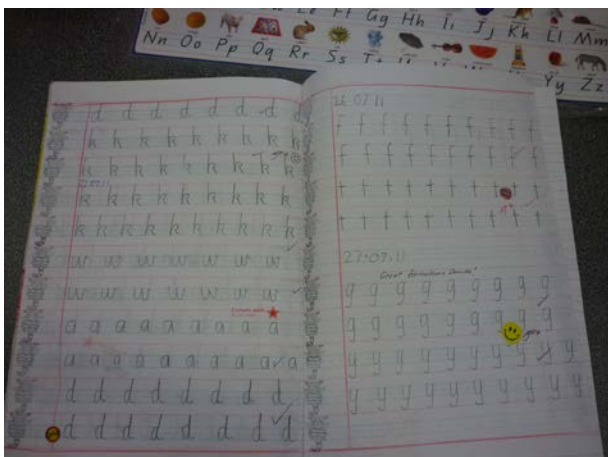 Ff Gg Hh Ii Jj Kh Ll Mm
Nn Oo Pp Qq Rr Ss Tt
Yy Zz
d d d d d d d d
k k k k k k k k k
k k k k k k k k k
k k k k k k k k k
k k k k k k k k k
w w w w w w w w
w w w w w w w w
a a a a a a a a a
a a a a a a a a a a
d d d d d d d d
d d d d d d d d d
26.07.11
f f f f f f f f f f f
f f f f f f f f f f f
t t t t t t t t t t t
t t t t t t t t t t t
27.07.11
Great
g g g g g g g g g
g g g g g g g g g
y y y y y y y y y y
y y y y y y y y y y